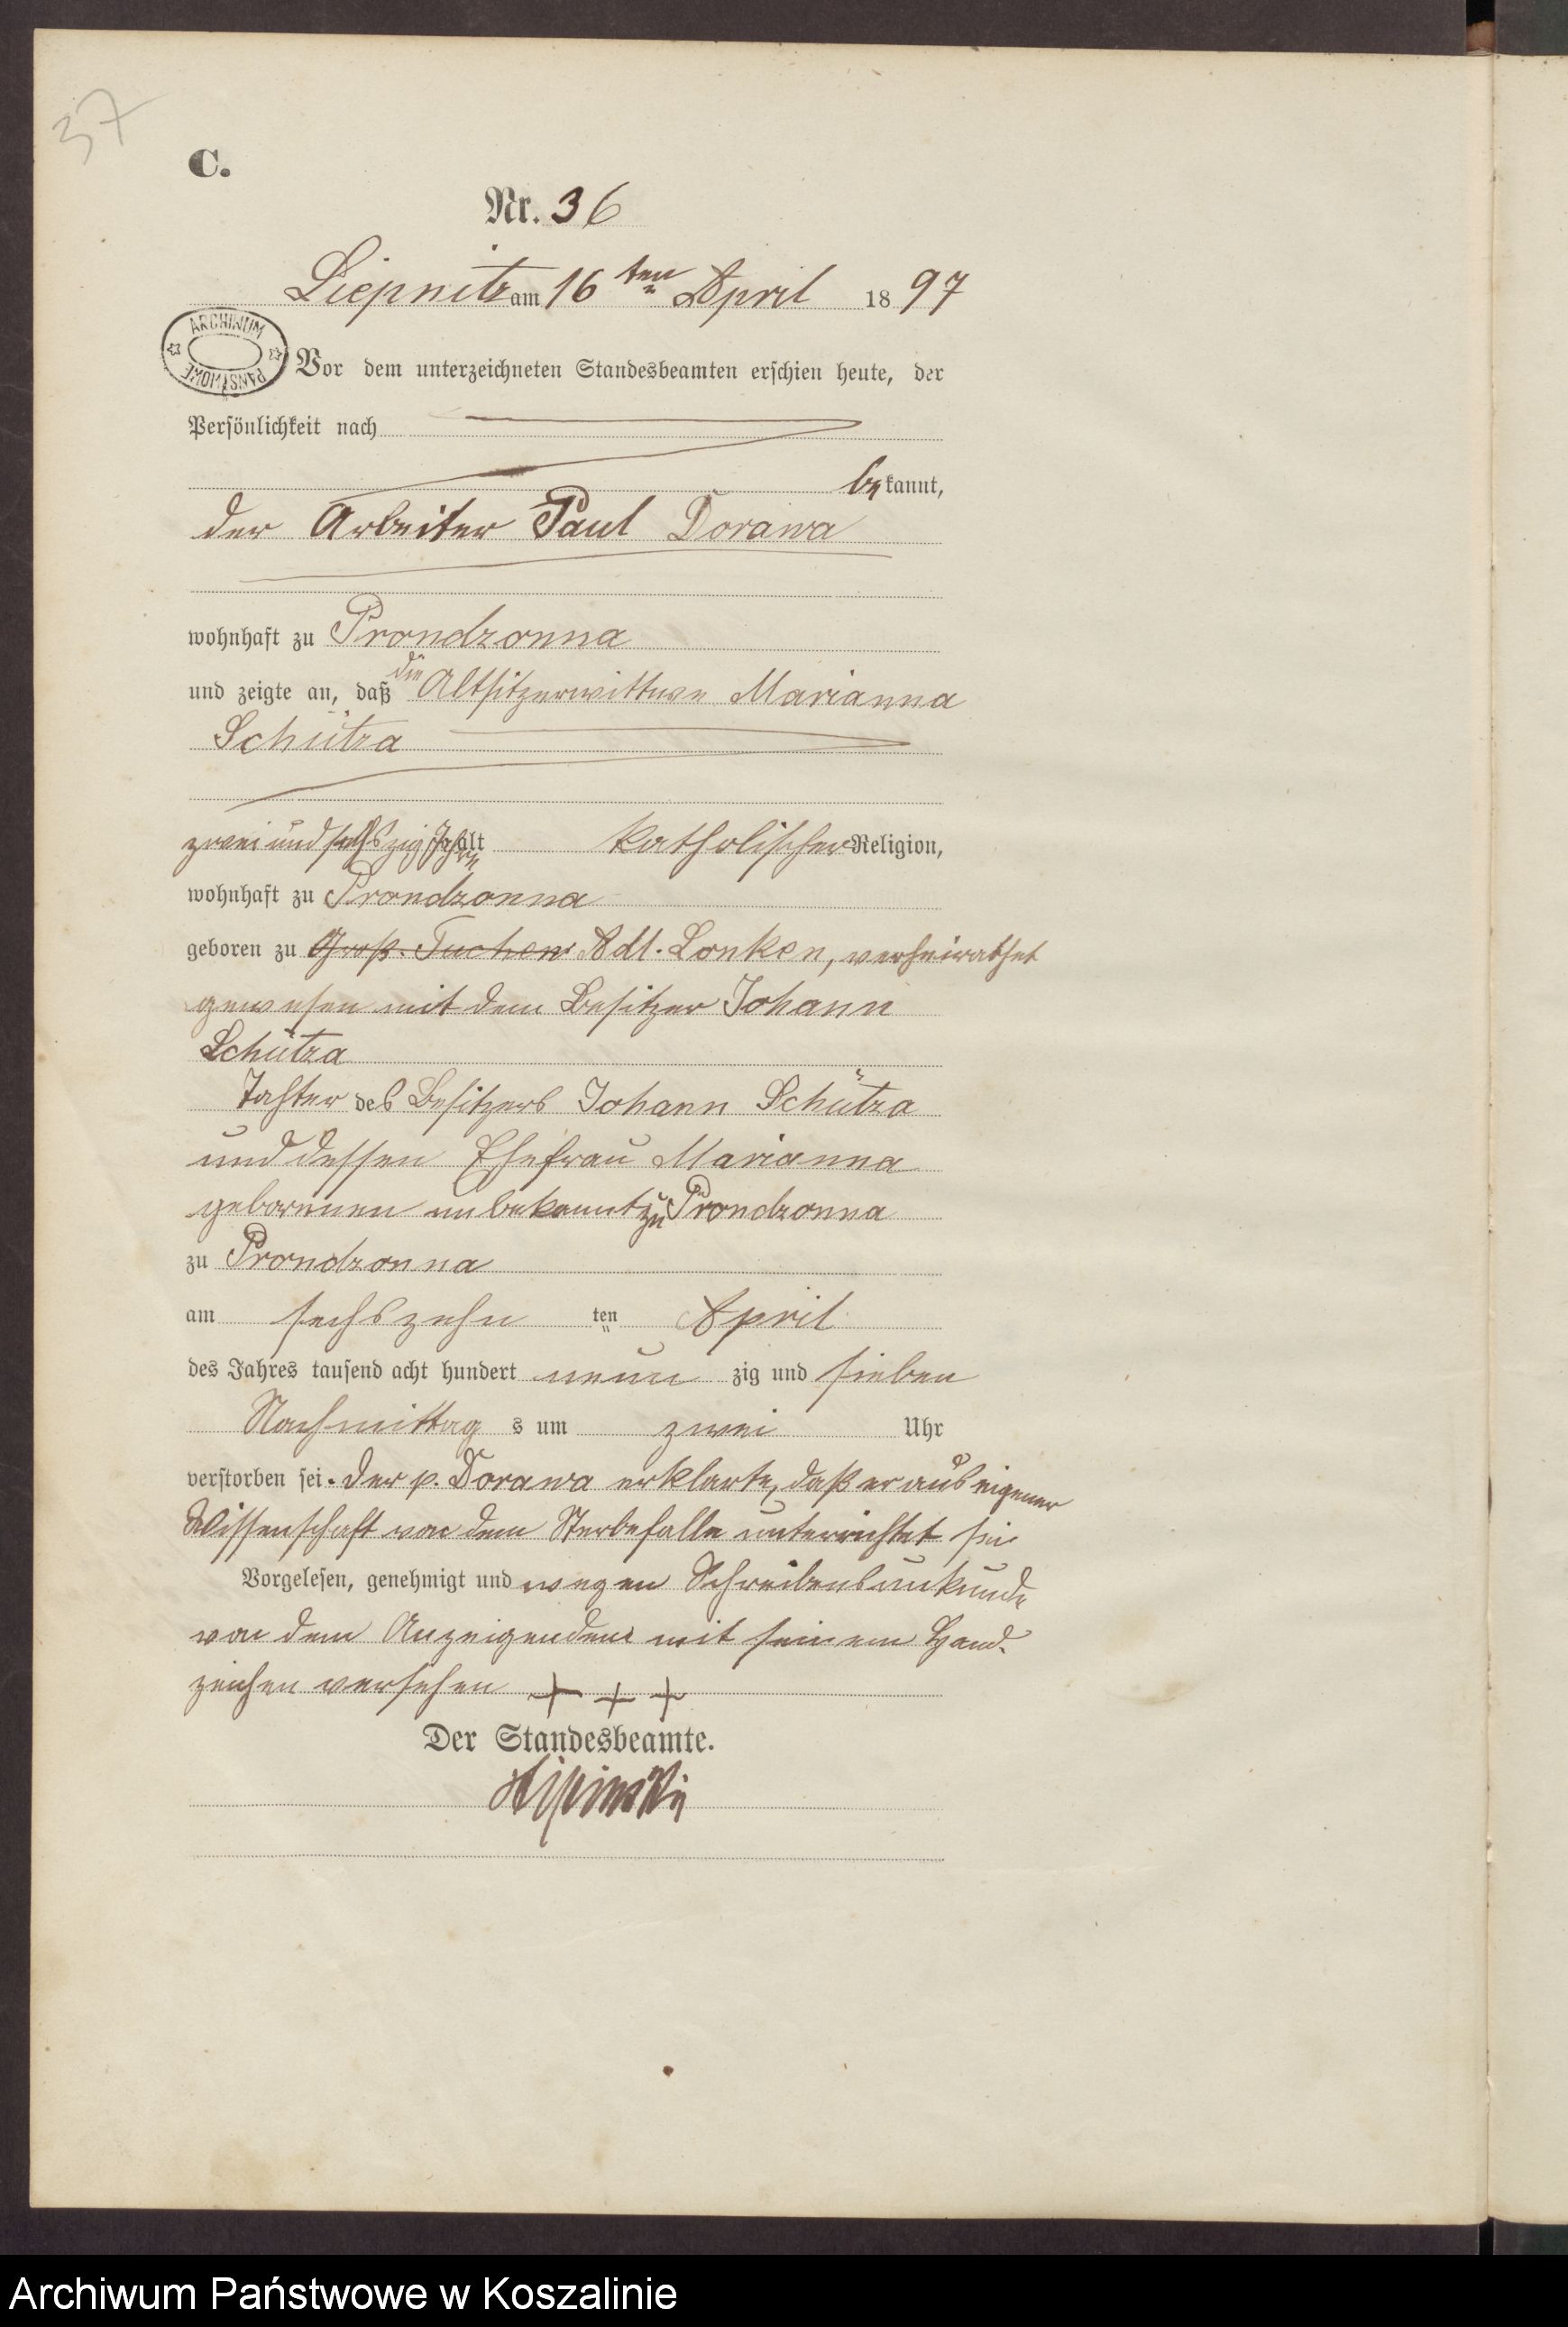 37
C.
Nr. 36
Liepnitz am 16ten April 1897
ARCHIWUM PAŃSTWOWE
Vor dem unterzeichneten Standesbeamten erschien heute, der
Persönlichkeit nach
bekannt,
der Arbeiter Paul Dorawa
wohnhaft zu Prondzonna
und zeigte an, daß die Altsitzerwittwe Marianna
Schütza
zwei und sechszig Jahre alt katholischer Religion,
wohnhaft zu Prondzonna
geboren zu Groß. Tuchen Adl. Lonken, verheirathet
gewesen mit dem Besitzer Johann
Schütza
Tochter des Besitzers Johann Schütza
und dessen Ehefrau Marianna
geborenen unbekannt zu Prondzonna
zu Prondzonna
am sechszehn ten April
des Jahres tausend acht hundert neun zig und sieben
Nachmittag s um zwei Uhr
verstorben sei. Der p. Dorawa erklarte, daß er aus eigener
Wissenschaft von dem Sterbefalle unterrichtet sei
Vorgelesen, genehmigt und wegen Schreibensunkunde
von dem Anzeigenden mit seinem Hand-
zeichen versehen + + +
Der Standesbeamte.
Archiwum Państwowe w Koszalinie